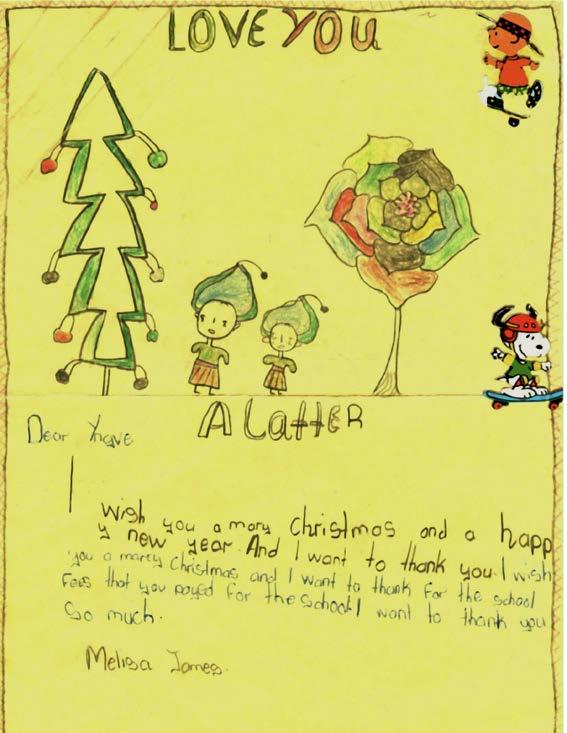 LOVE YOU
A LattER
Dear Yngve
I
wish you a mary christmas and a happ
y new year. And I want to thank you. I wish
you a marry Christmas and I want to thank for the school
Fees that you payed for the school I want to thank you
So much.
Melisa James.